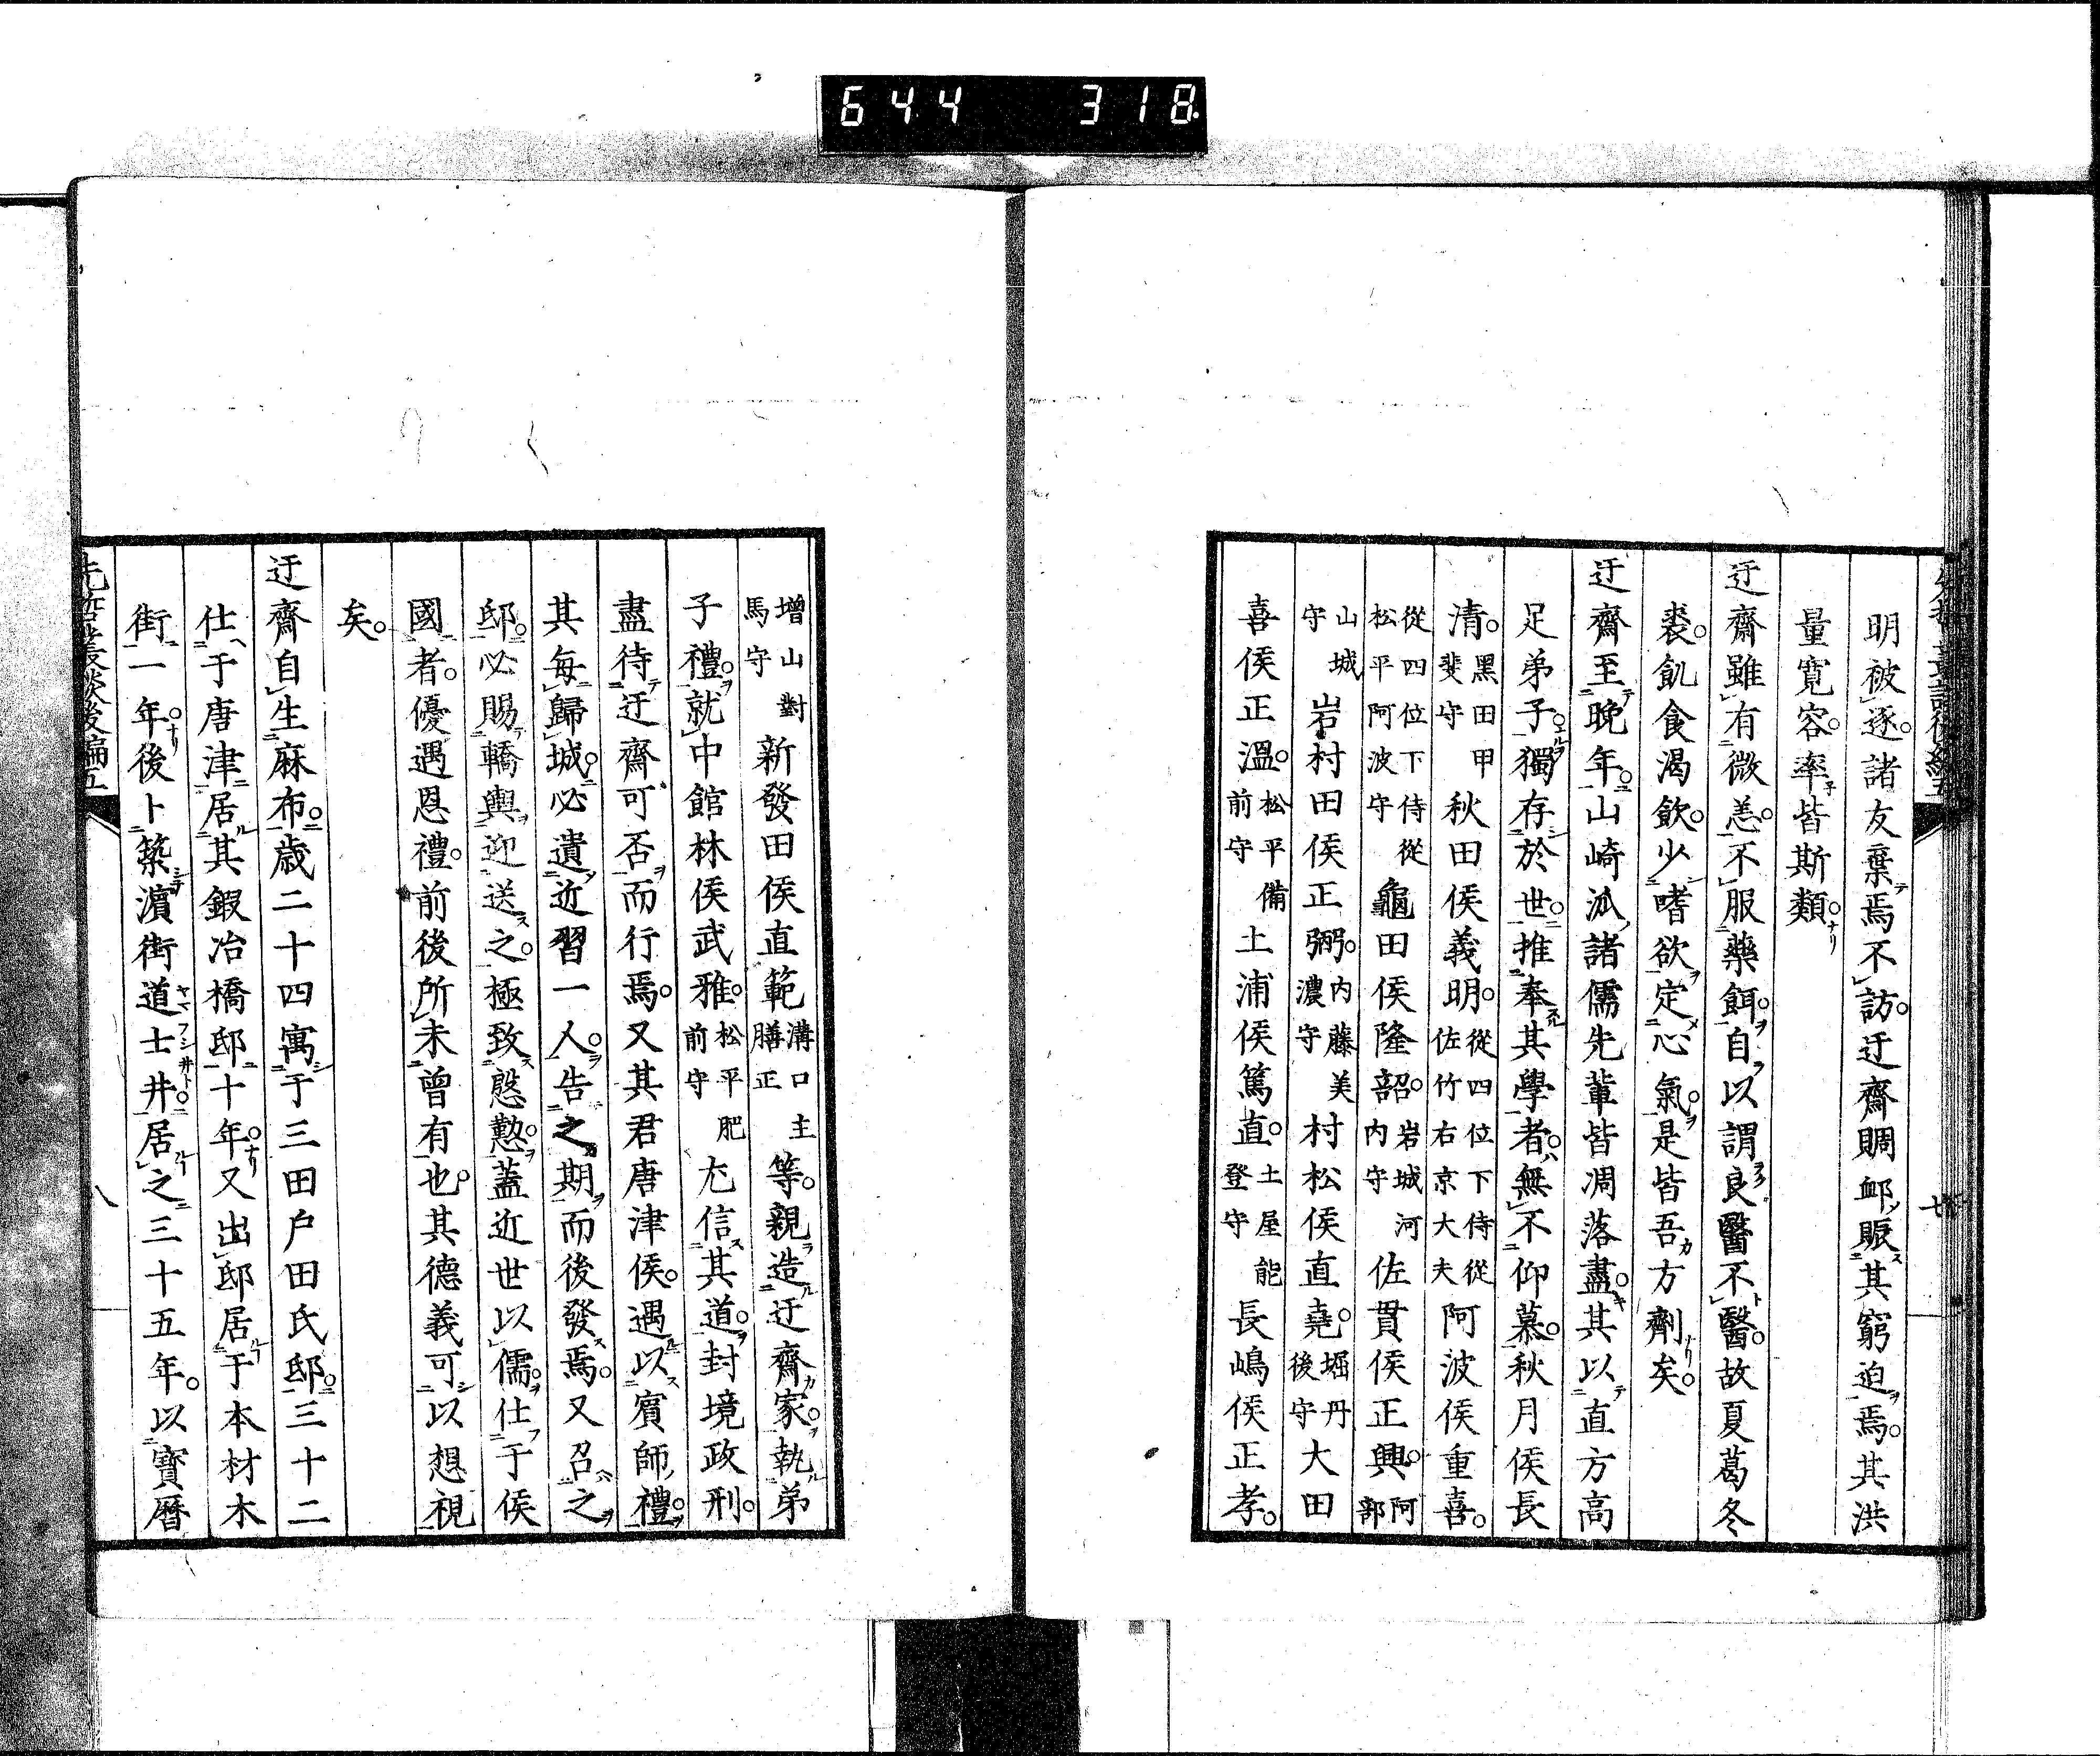 644 318
明被逐。諸友棄焉不訪。迂齋賙䘏賑其窮迫焉。其洪
量寛容。率皆斯類。
迂齋雖有微恙。不服藥餌。自以謂良醫不醫。故夏葛冬
裘。飢食渴飲。少嗜欲定心氣。是皆吾方劑矣。
迂齋至晩年。山崎派諸儒先輩皆凋落盡。其以直方高
足弟子。獨存於世。推奉其學者。無不仰慕。秋月侯長
清。黑田甲斐守 秋田侯義明。從四位下侍從佐竹右京大夫 阿波侯重喜。
從四位下侍從松平阿波守 龜田侯隆韶。岩城河內守 佐貫侯正興。阿部
山城守 岩村田侯正弼。內藤美濃守 村松侯直堯。堀丹後守 大田
喜侯正溫。松平備前守 土浦侯篤直。土屋能登守 長嶋侯正孝。
增山對馬守 新發田侯直範溝口主膳正 等。親造迂齋家。執弟
子禮。就中館林侯武雅。松平肥前守 尤信其道。封境政刑。
盡待迂齋可否而行焉。又其君唐津侯。遇以賓師禮。
其每歸城。必遺近習一人。告之期而後發焉。又召之
邸。必賜轎輿迎送之。極致慇懃。蓋近世以儒仕于侯
國者。優遇恩禮。前後所未曾有也。其德義可以想視
矣。
迂齋自生麻布。歲二十四寓于三田戶田氏邸。三十二
仕于唐津居其鍜冶橋邸十年。又出邸居于本材木
街一年。後卜築濵街道士井。居之三十五年。以寶曆
先哲叢談後編五
八